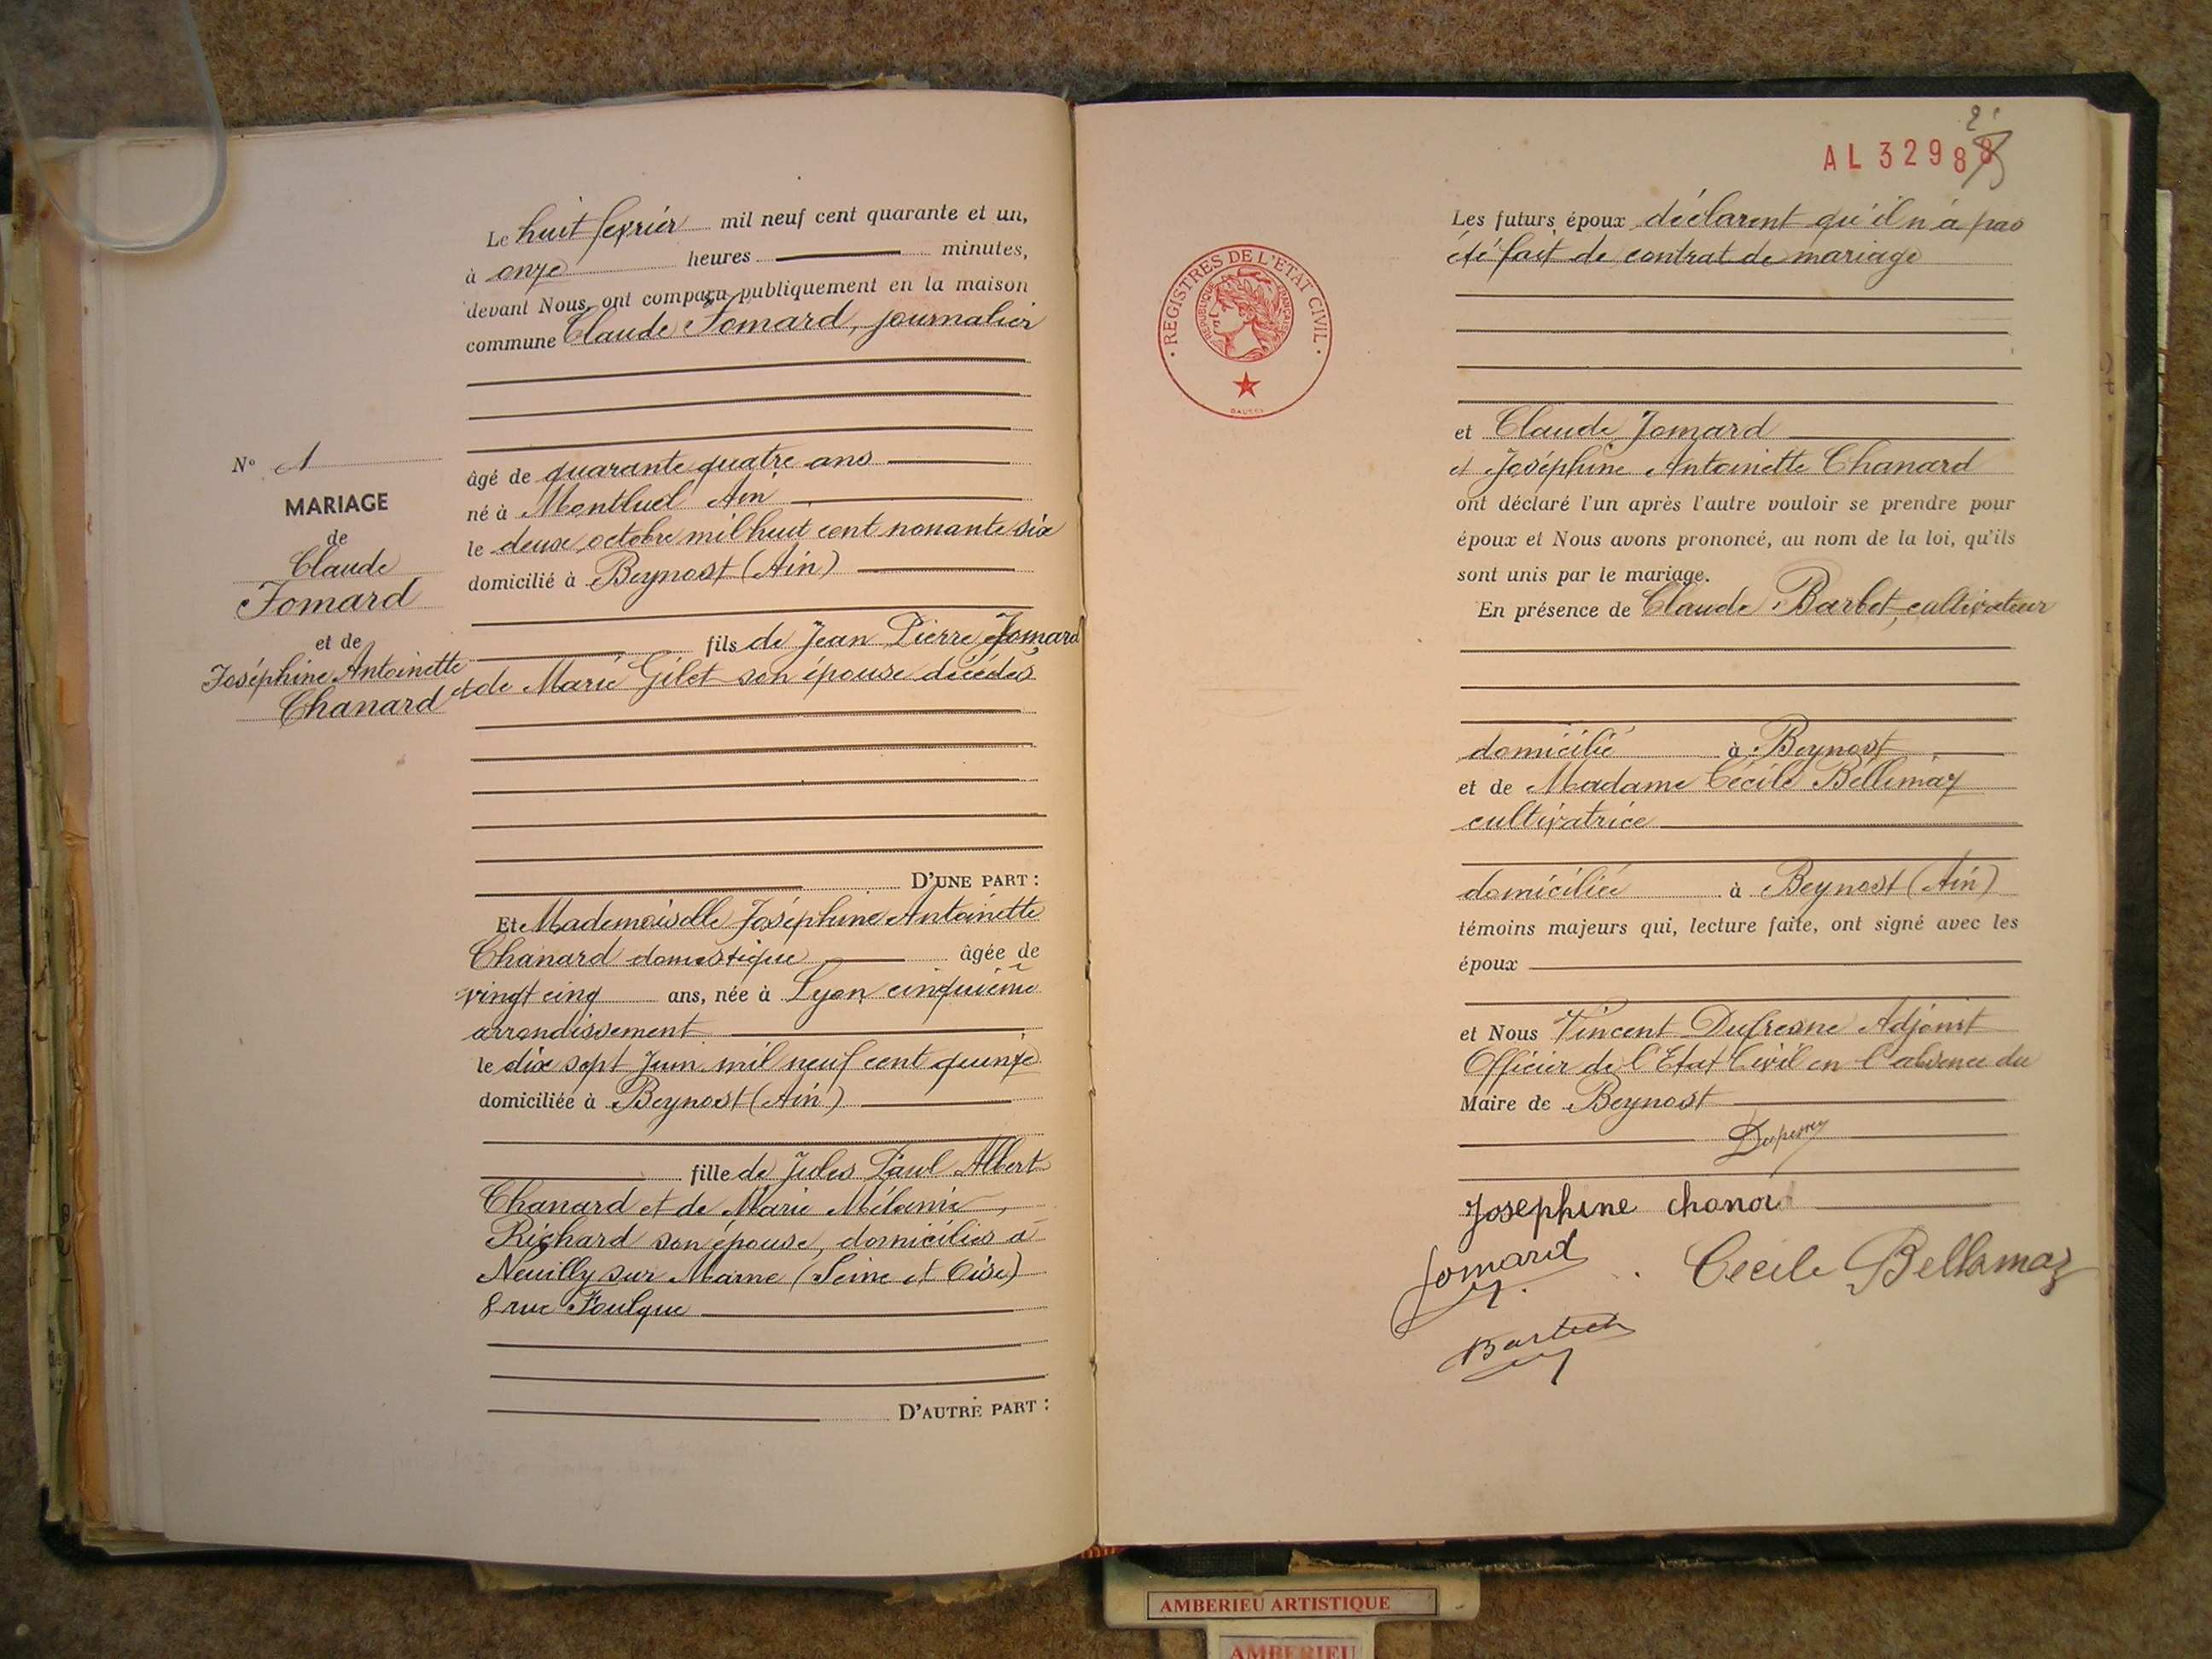 Le huit février mil neuf cent quarante et un,
à onze heures minutes,
devant Nous, ont comparu publiquement en la maison
commune Claude Jomard, journalier
N° 1
MARIAGE
de
Claude
Jomard
et de
Joséphine Antoinette
Chanard
âgé de quarante quatre ans
né à Montluel Ain
le deux octobre mil huit cent nonante six
domicilié à Beynost (Ain)
fils de Jean Pierre Jomard
et de Marie Gilet son épouse décédés
D'UNE PART :
Et Mademoiselle Joséphine Antoinette
Chanard domestique âgée de
vingt cinq ans, née à Lyon cinquième
arrondissement
le dix sept Juin mil neuf cent quinze
domiciliée à Beynost (Ain)
fille de Jules Paul Albert
Chanard et de Marie Mélanie
Richard son épouse, domiciliés à
Neuilly sur Marne (Seine et Oise)
8 rue Foulque
D'AUTRE PART :
AL 3298
REGISTRES DE L'ETAT CIVIL
REPUBLIQUE FRANÇAISE
Les futurs époux déclarent qu'il n'a pas
été fait de contrat de mariage
et Claude Jomard
et Joséphine Antoinette Chanard
ont déclaré l'un après l'autre vouloir se prendre pour
époux et Nous avons prononcé, au nom de la loi, qu'ils
sont unis par le mariage.
En présence de Claude Barbet, cultivateur
domicilié à Beynost
et de Madame Cécile Bellemaz
cultivatrice
domiciliée à Beynost (Ain)
témoins majeurs qui, lecture faite, ont signé avec les
époux
et Nous Vincent Dufresne Adjoint
Officier de l'Etat Civil en l'absence du
Maire de Beynost
Josephine chanard
Jomard
Cecile Bellamaz
AMBERIEU ARTISTIQUE
AMBERIEU